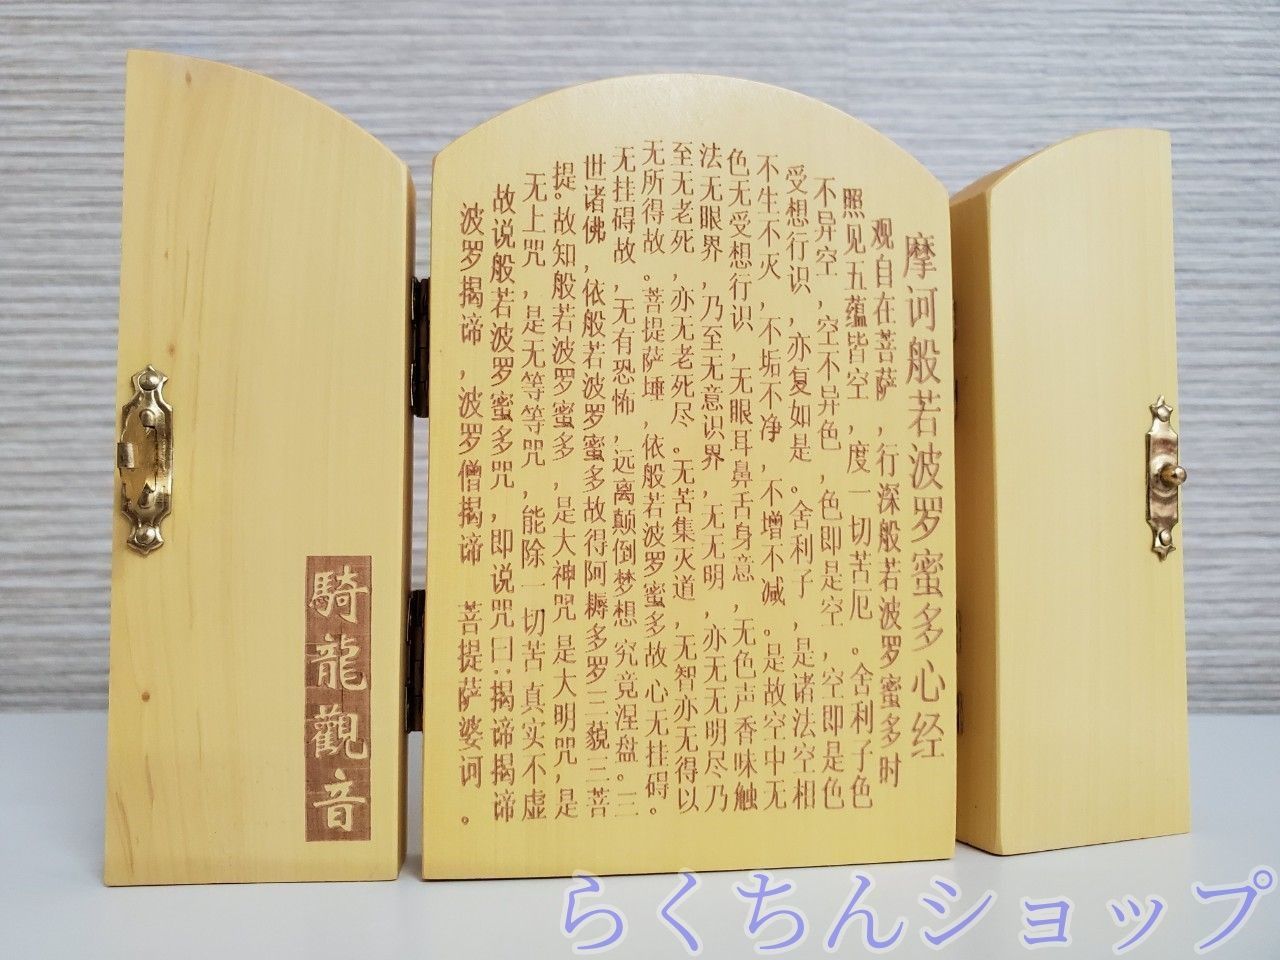 摩诃般若波罗蜜多心经
观自在菩萨，行深般若波罗蜜多时
照见五蕴皆空，度一切苦厄。舍利子色
不异空，空不异色，色即是空，空即是色
受想行识，亦复如是。舍利子，是诸法空相
不生不灭，不垢不净，不增不减。是故空中无
色无受想行识，无眼耳鼻舌身意，无色声香味触
法无眼界，乃至无意识界，无无明，亦无无明尽乃
至无老死，亦无老死尽。无苦集灭道，无智亦无得以
无所得故。菩提萨埵，依般若波罗蜜多故 心无挂碍。
无挂碍故，无有恐怖，远离颠倒梦想 究竟涅盘。三
世诸佛，依般若波罗蜜多故得阿耨多罗三藐三菩
提。故知般若波罗蜜多，是大神咒 是大明咒，是
无上咒，是无等等咒，能除一切苦真实不虚
故说般若波罗蜜多咒，即说咒曰:揭谛揭谛
波罗揭谛，波罗僧揭谛 菩提萨婆诃。
騎龍觀音
らくちんショップ